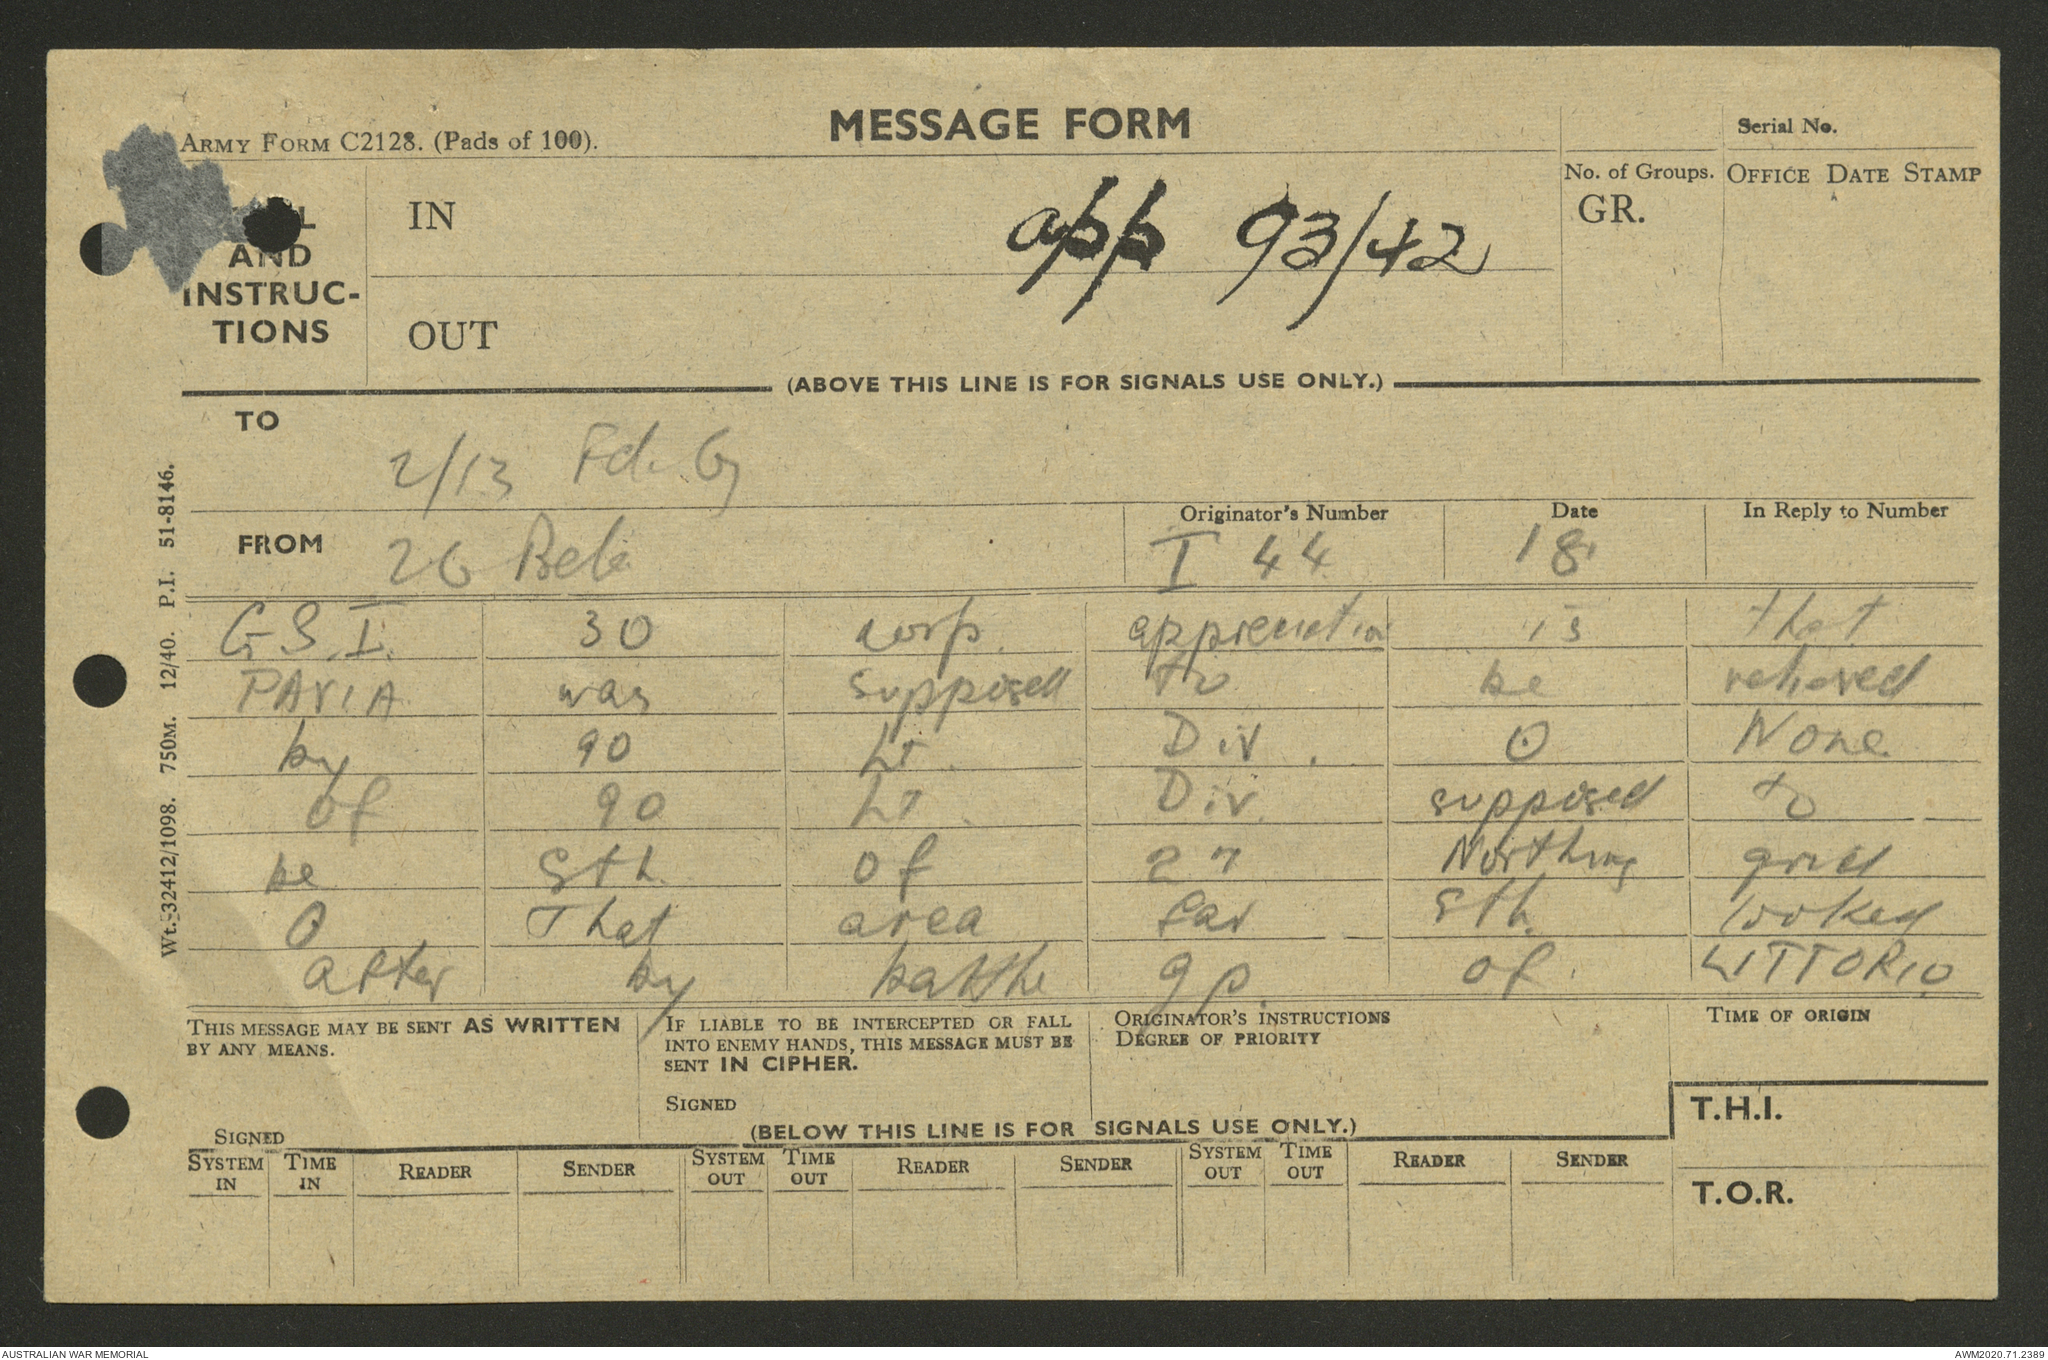 MESSAGE FORM
ARMY FORM C2128. (Pads of 100).
Serial No.
AND INSTRUC-TIONS
IN
app 93/42
No. of Groups.
GR.
OFFICE DATE STAMP
OUT
(ABOVE THIS LINE IS FOR SIGNALS USE ONLY.)
TO
2/13 Fd. Coy
FROM
26 Bde
Originator's Number
I 44
Date
18
In Reply to Number
G.S.I. 30 corp. appreciation is that
PAVIA was supposed to be relieved
by 90 Lt. Div. O None
of 90 Lt. Div. supposed to
be Sth. of 27 Northing grid
O That area far Sth. looked
after by battle gp. of LITTORIO
THIS MESSAGE MAY BE SENT AS WRITTEN
BY ANY MEANS.
IF LIABLE TO BE INTERCEPTED OR FALL
INTO ENEMY HANDS, THIS MESSAGE MUST BE
SENT IN CIPHER.
ORIGINATOR'S INSTRUCTIONS
DEGREE OF PRIORITY
TIME OF ORIGIN
SIGNED
SIGNED
(BELOW THIS LINE IS FOR SIGNALS USE ONLY.)
T.H.I.
SYSTEM IN TIME IN READER SENDER SYSTEM OUT TIME OUT READER SENDER SYSTEM OUT TIME OUT READER SENDER
T.O.R.
Wt.-32412/1098. 750M. 12/40. P.I. 51-8146.
AUSTRALIAN WAR MEMORIAL
AWM2020.71.2389